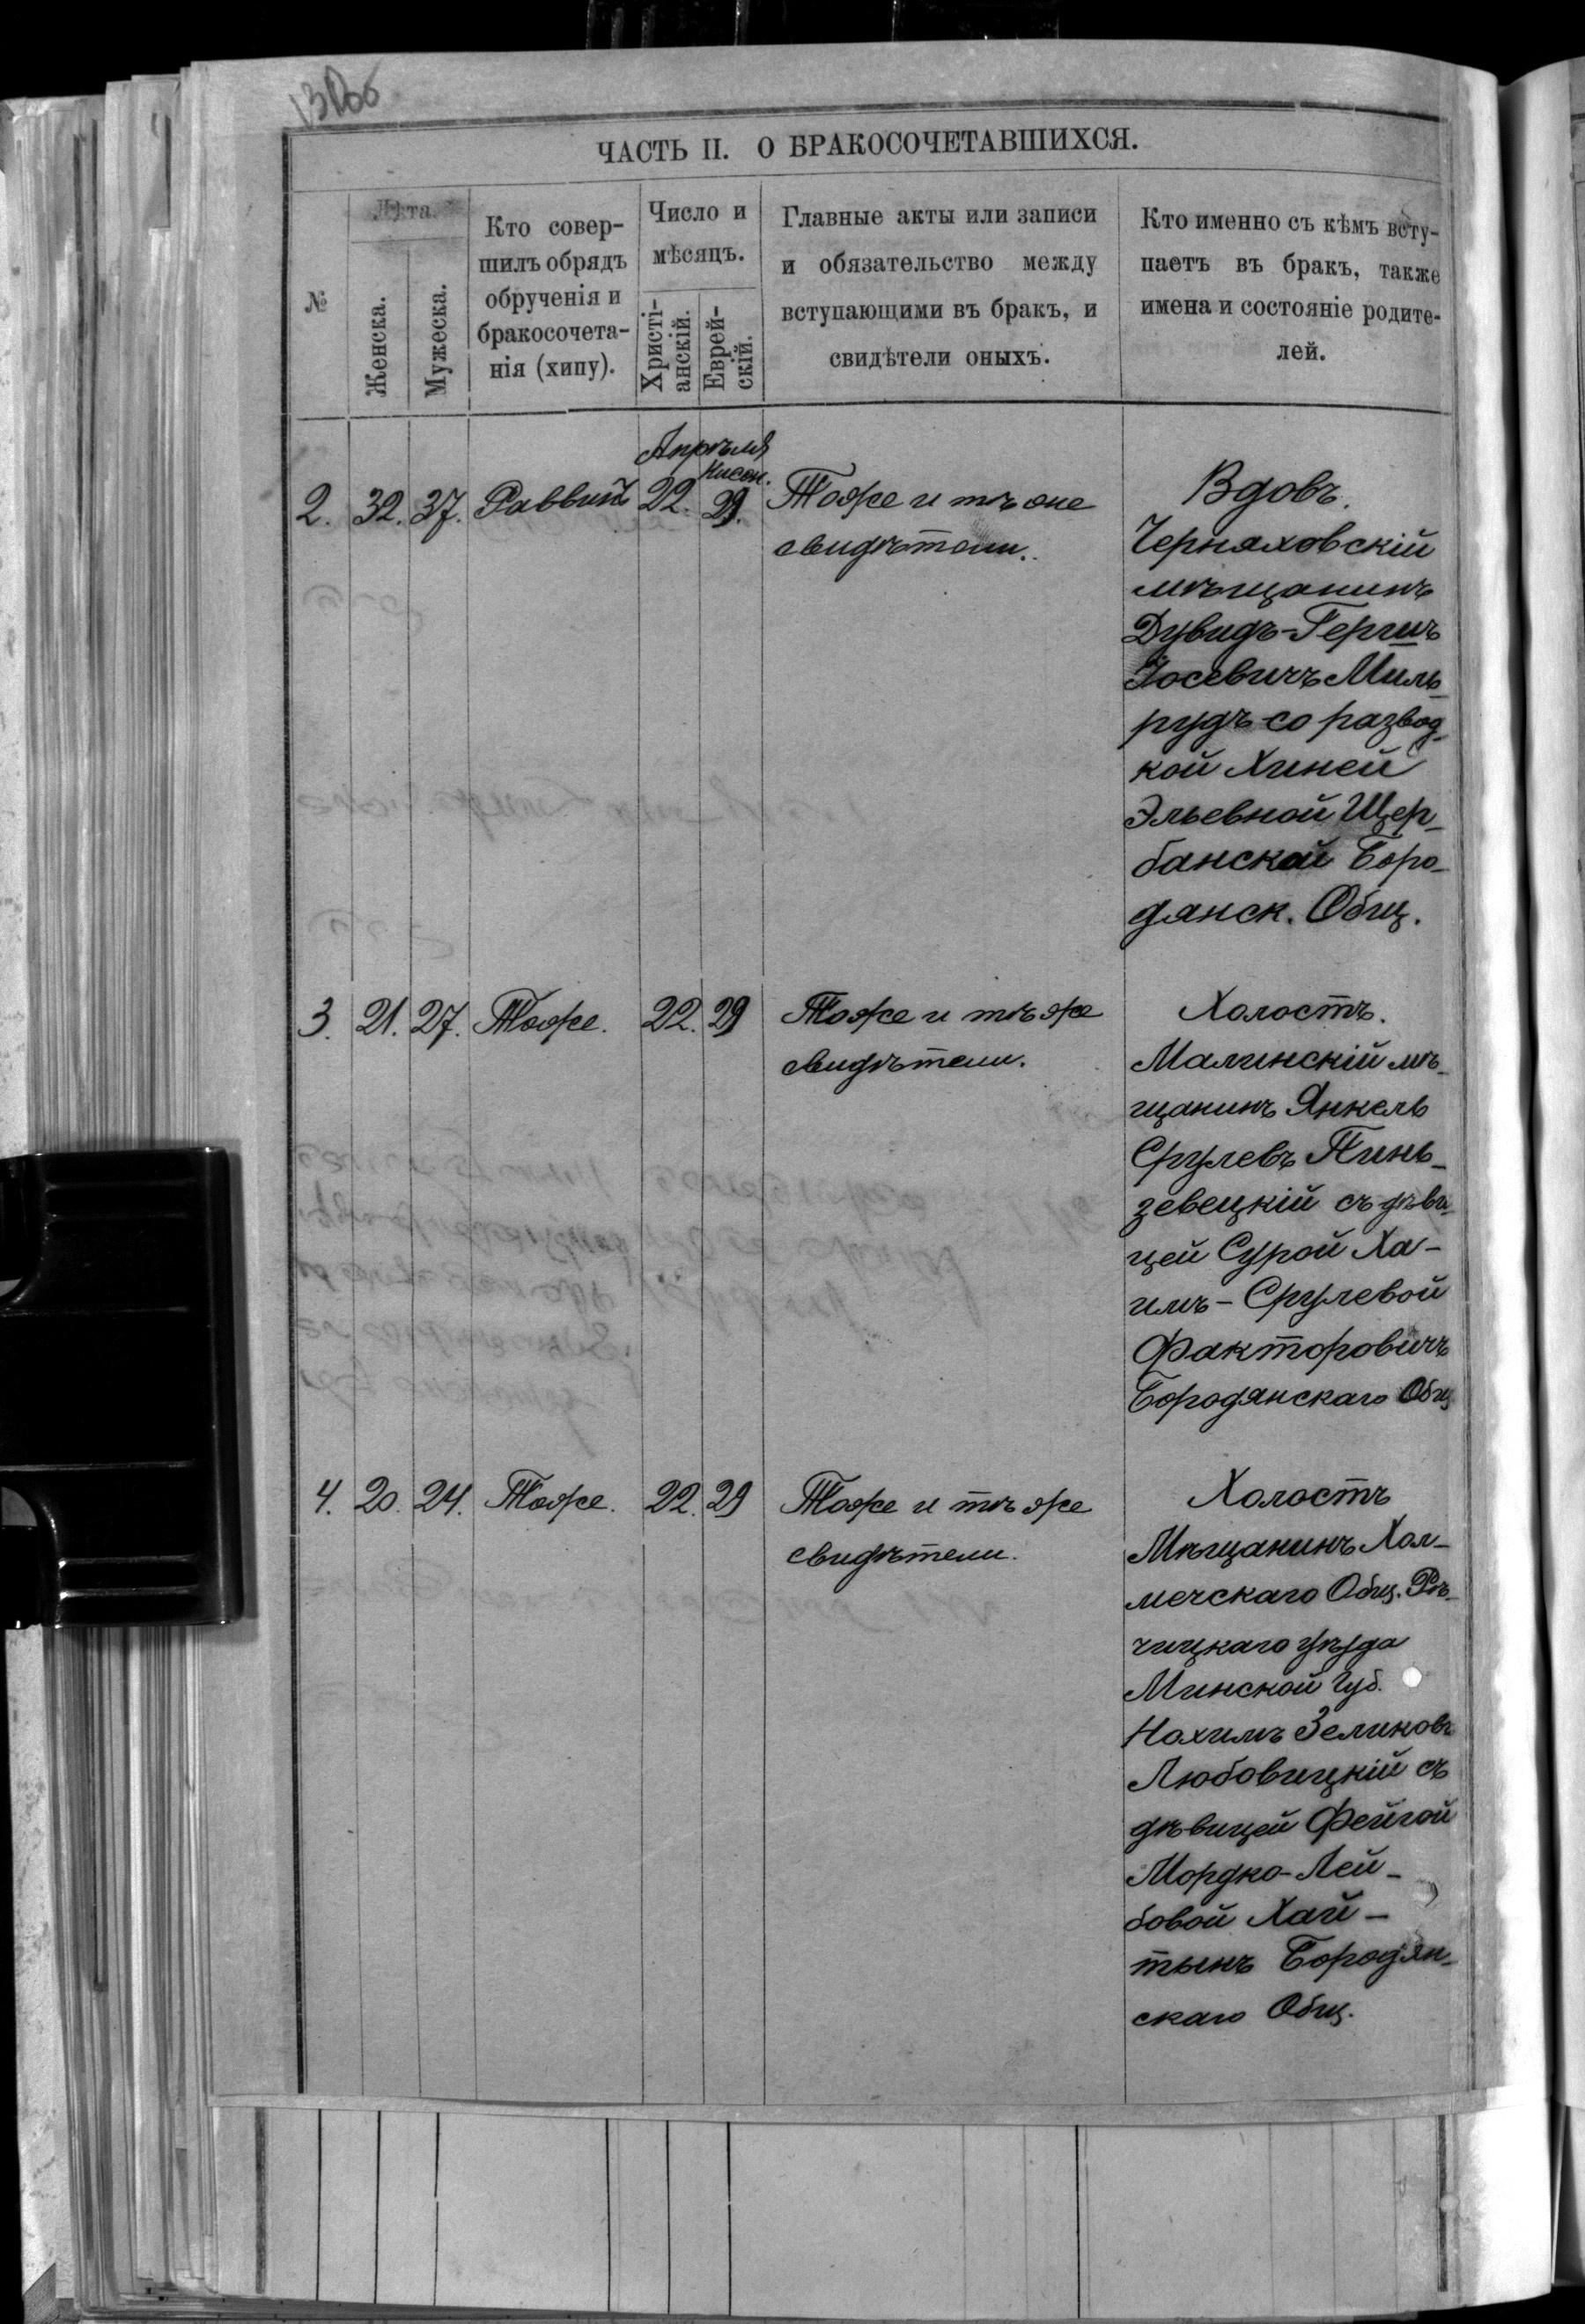 ЧАСТЬ II. О БРАКОСОЧЕТАВШИХСЯ.
№
Лѣта.
Женска.
Мужеска.
Кто совер-
шилъ обрядъ
обрученія и
бракосочета-
нія (хипу).
Число и
мѣсяцъ.
Христі-
анскій.
Еврей-
скій.
Главные акты или записи
и обязательство между
вступающими въ бракъ, и
свидѣтели оныхъ.
Кто именно съ кѣмъ всту-
паетъ въ бракъ, также
имена и состояніе родите-
лей.
Апрѣля
Нисон.
2. 32. 37. Раввинъ 22. 29. Тоже и тѣ же
свидѣтели.
Вдовъ.
Черняховскій
мѣщанинъ
Дувидъ-Гершъ
Іосевичъ Миль-
рудъ со развод-
кой Хиней
Эльевной Щер-
банской Боро-
дянск. Общ.
3. 21. 27. Тоже. 22. 29 Тоже и тѣ же
свидѣтели.
Холостъ.
Малинскій мѣ-
щанинъ Янкель
Срулевъ Пинь-
зевецкій съ дѣви-
цей Сурой Ха-
имъ-Срулевой
Факторовичъ
Бородянскаго Общ
4. 20. 24. Тоже. 22. 29 Тоже и тѣ же
свидѣтели.
Холостъ
Мѣщанинъ Хол-
мечскаго Общ. Рѣ-
чицкаго уѣзда
Минской Губ.
Нохимъ Зеликовъ
Любовицкій съ
дѣвицей Фейгой
Мордко-Лей-
бовой Хай-
тынъ Бородян-
скаго Общ.